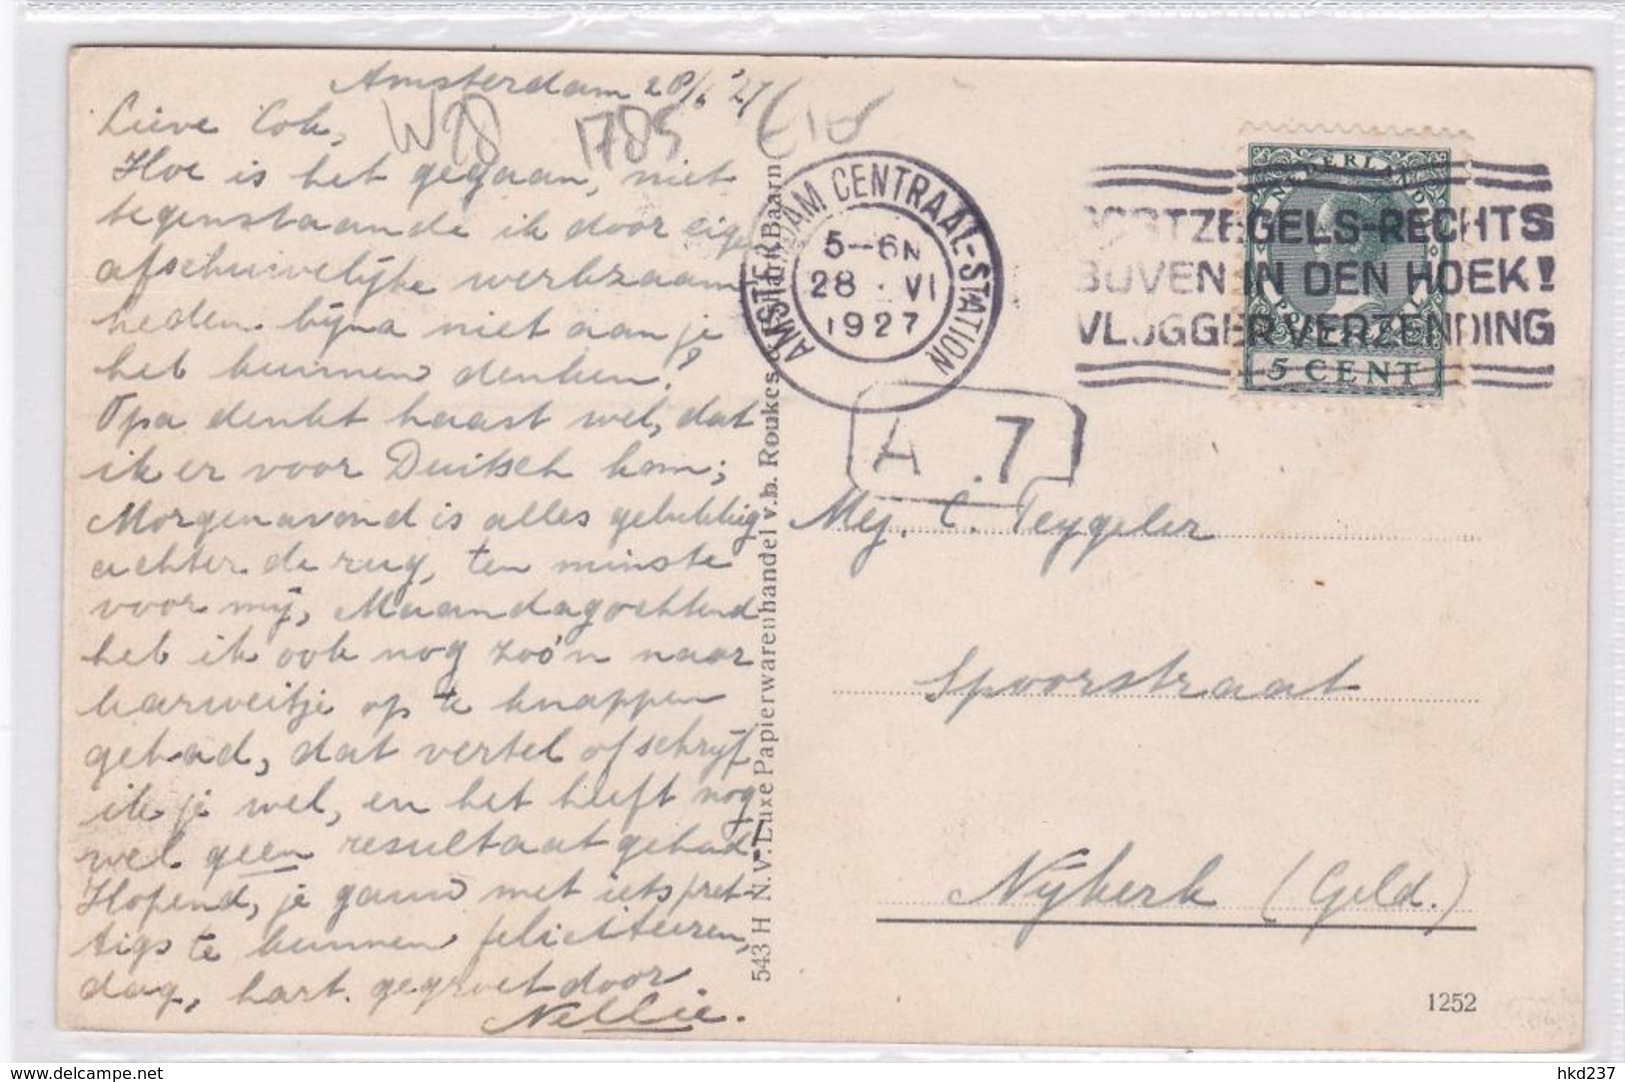 Amsterdam 28/6 '27
Lieve Cok,
W28 1785
Hoe is het gegaan, niet
tegenstaande ik door eigen
afschuwelijke werkzaam
heden bijna niet aan je
heb kunnen denken?
Opa denkt haast wel, dat
ik er voor Duitsch kom;
Morgenavond is alles gelukkig
achter de rug, ten minste
voor mij, Maandagochtend
heb ik ook nog zoo'n naar
karweitje op te knappen
gehad, dat vertel of schrijf
ik je wel, en het heeft nog
wel geen resultaat gehad!
Hopend, je gauw met iets pret
tigs te kunnen feliciteeren,
dag, hart. gegroet door
Nellie.
543 H N.V. Luxe Papierwarenhandel v.h. Roukes & Erhart Baarn
AMSTERDAM CENTRAAL-STATION
5-6N
28 · VI
1927
POSTZEGELS-RECHTS
BOVEN IN DEN HOEK!
VLUGGER VERZENDING
NEDERLAND
5 CENT
A .7
Mej. C. Teygeler
Spoorstraat
Nijkerk (Geld.)
1252
www.delcampe.net
hkd237